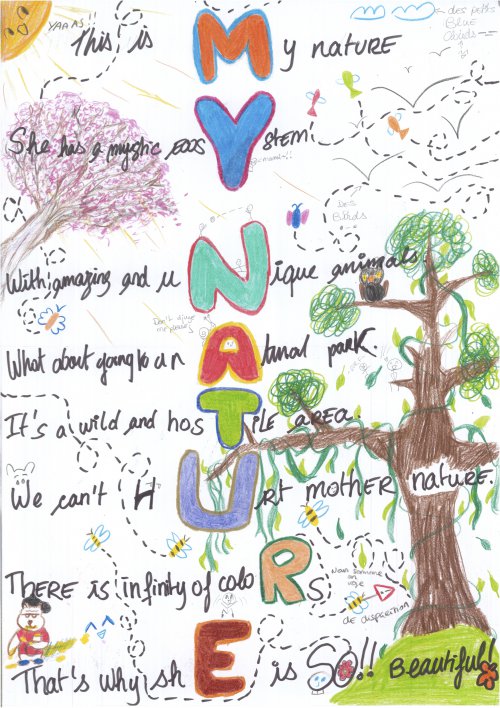 YAAAS!
des petits
Blue
Clouds
This is My nature
She has a mystic ECOSYstem
Des
Birds
With amazing and uNique animals
Don't
What about going to a nAtural park.
It's a wild and hosTile area.
We can't HURt mother nature.
Nous sommes
en
voie
de disparection
There is infinity of coloRs
That's why shE is So!! Beautiful!